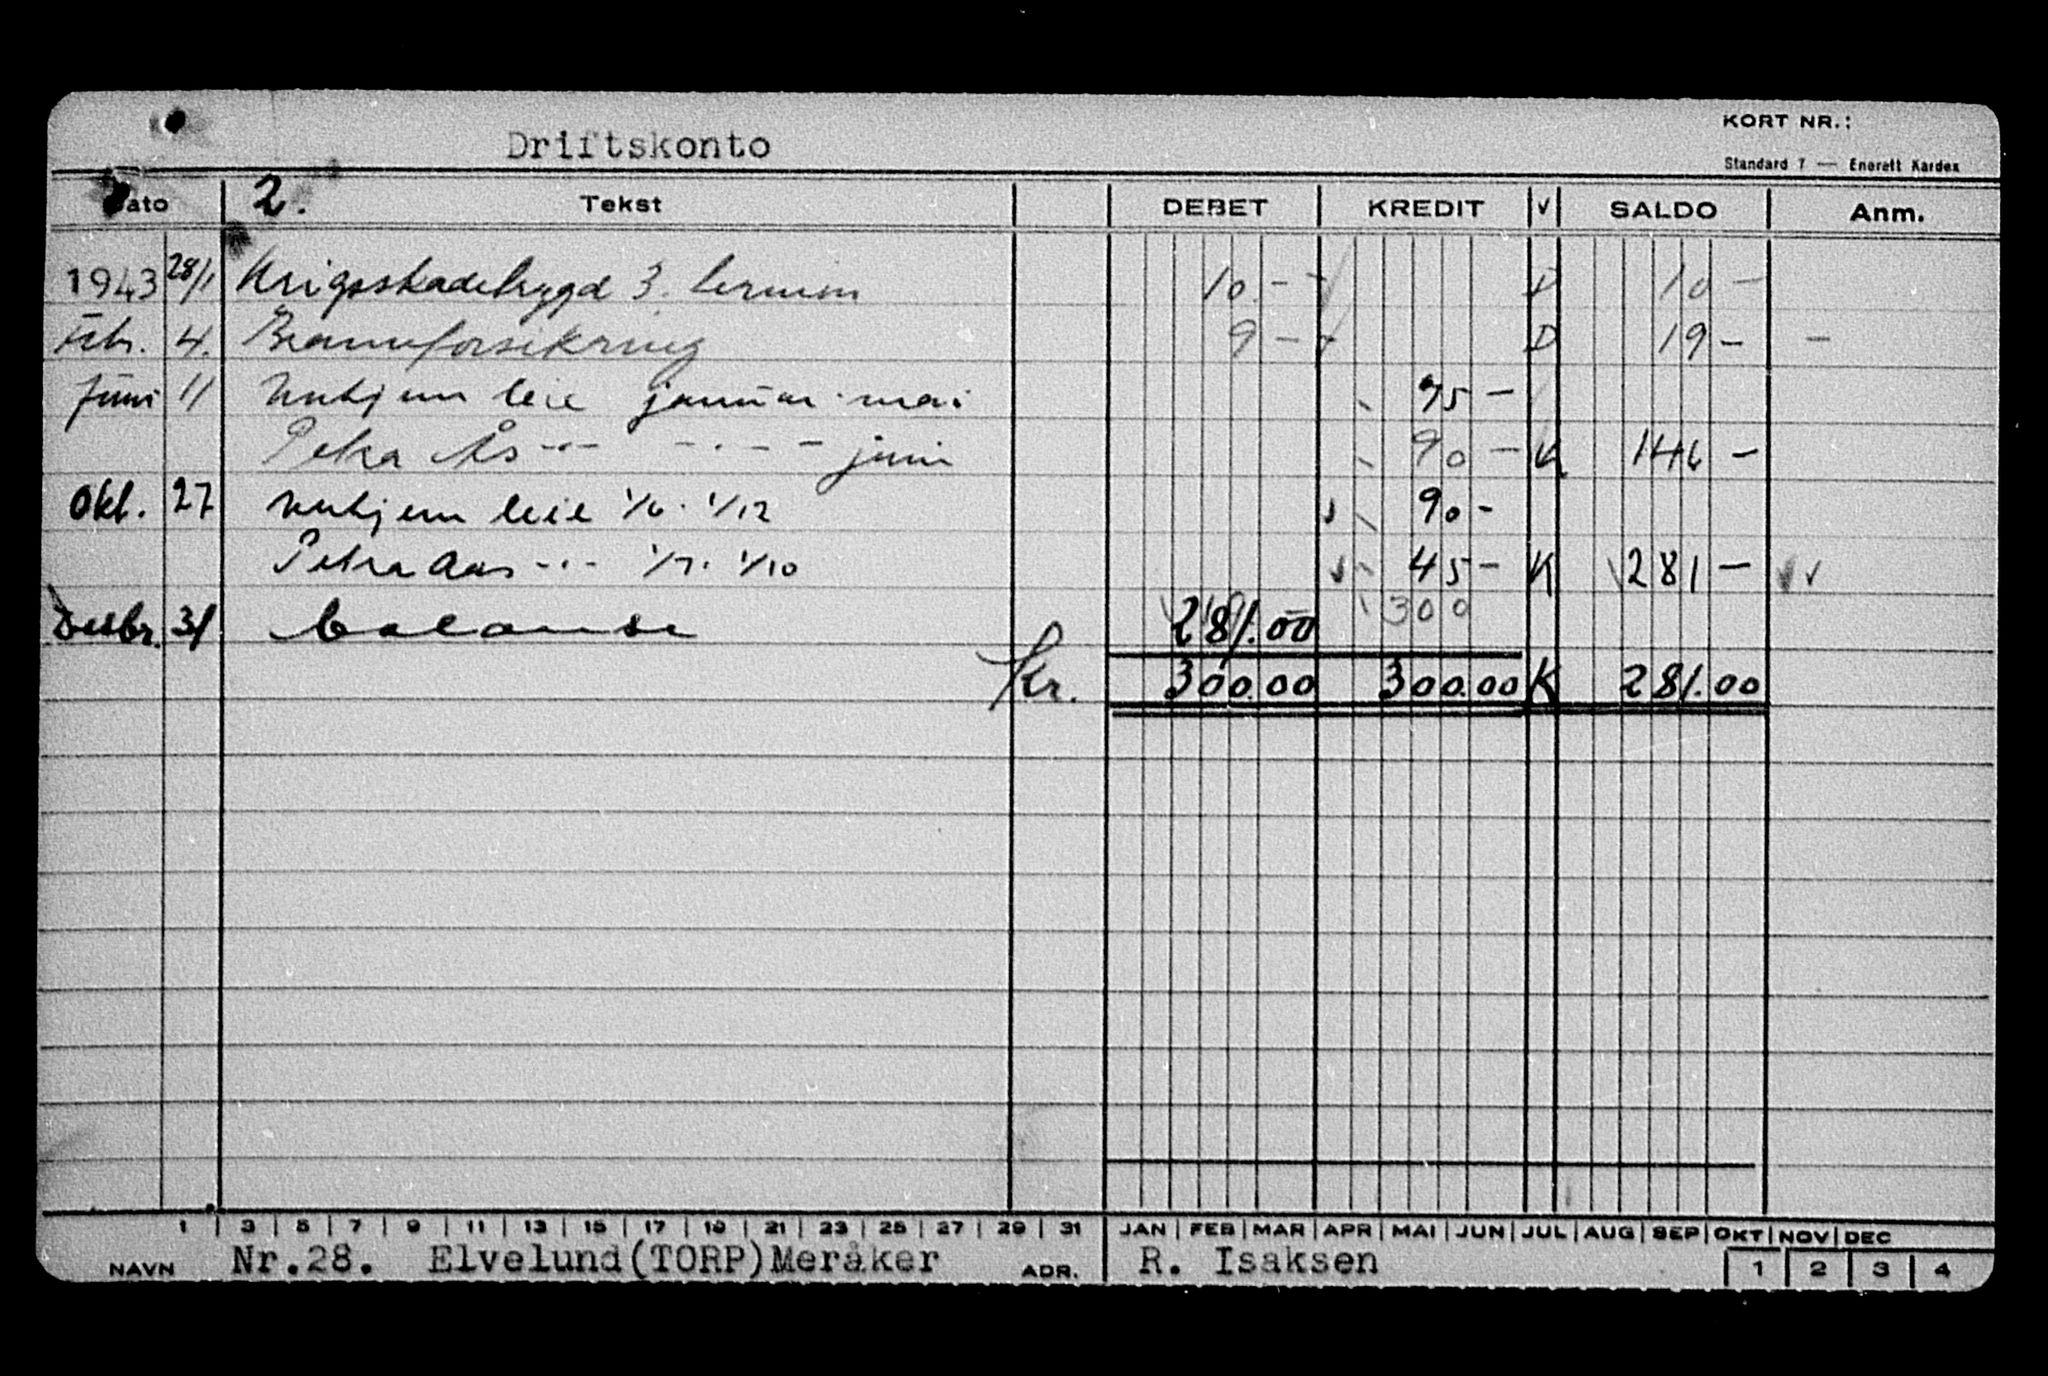 Driftskonto
KORT NR.:
Standard 7 — Enerett Kardex
Dato 2. Tekst DEBET KREDIT V SALDO Anm.
1943 28/1 Krigsskadetrygd 3. termin 10.- D 10 -
Febr. 4. Brannforsikring 9 - D 19 - -
Juni 11 leie januar - mai 75 -
Petra Ås -"- -"- - juni 90 - K 146 -
Okt. 27 leie 1/6 - 1/12 90 -
Petra Aas -"- 1/7. 1/10 45 - K 281 -
Desbr. 31 balanse 281.00 300
Kr. 300.00 300.00 K 281.00
1 3 5 7 9 11 13 15 17 19 21 23 25 27 29 31 JAN FEB MAR APR MAI JUN JUL AUG SEP OKT NOV DEC
NAVN Nr.28. Elvelund(TORP)Meråker ADR. R. Isaksen 1 2 3 4